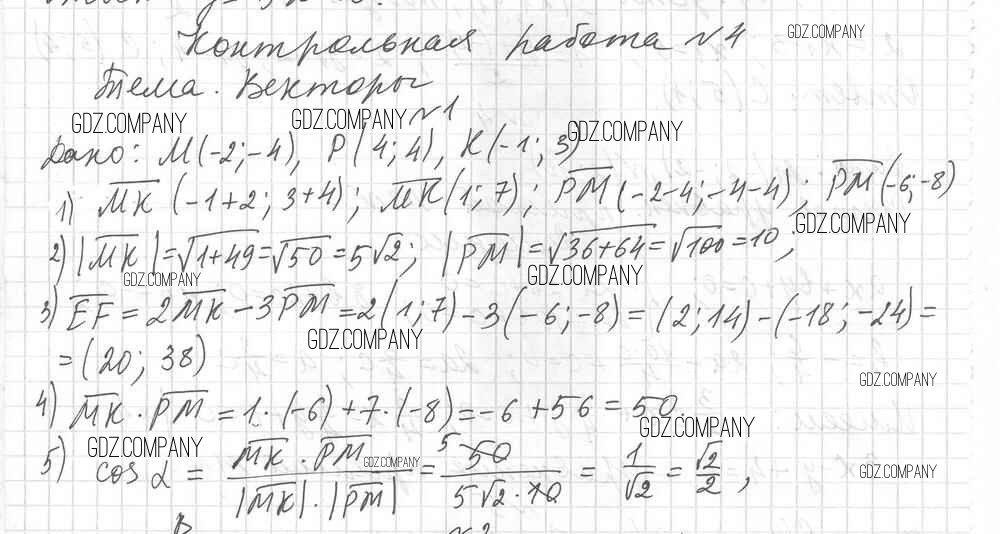 Контрольная работа №4
GDZ.COMPANY
Тема. Векторы
GDZ.COMPANY
GDZ.COMPANY
№1
GDZ.COMPANY
Дано: M(-2;-4), P(4;4), K(-1;3)
1) MK (-1+2; 3+4); MK(1;7); PM(-2-4;-4-4); PM(-6;-8)
GDZ.COMPANY
2) |MK|=√1+49=√50=5√2; |PM|=√36+64=√100=10;
GDZ.COMPANY
GDZ.COMPANY
3) EF = 2MK-3PM=2(1;7)-3(-6;-8)=(2;14)-(-18;-24)=
GDZ.COMPANY
=(20; 38)
GDZ.COMPANY
4) MK·PM=1·(-6)+7·(-8)=-6+56=50.
GDZ.COMPANY
GDZ.COMPANY
5) cos α = MK·PM / |MK|·|PM| = 5 50 / 5√2·10 = 1/√2 = √2/2,
GDZ.COMPANY
GDZ.COMPANY